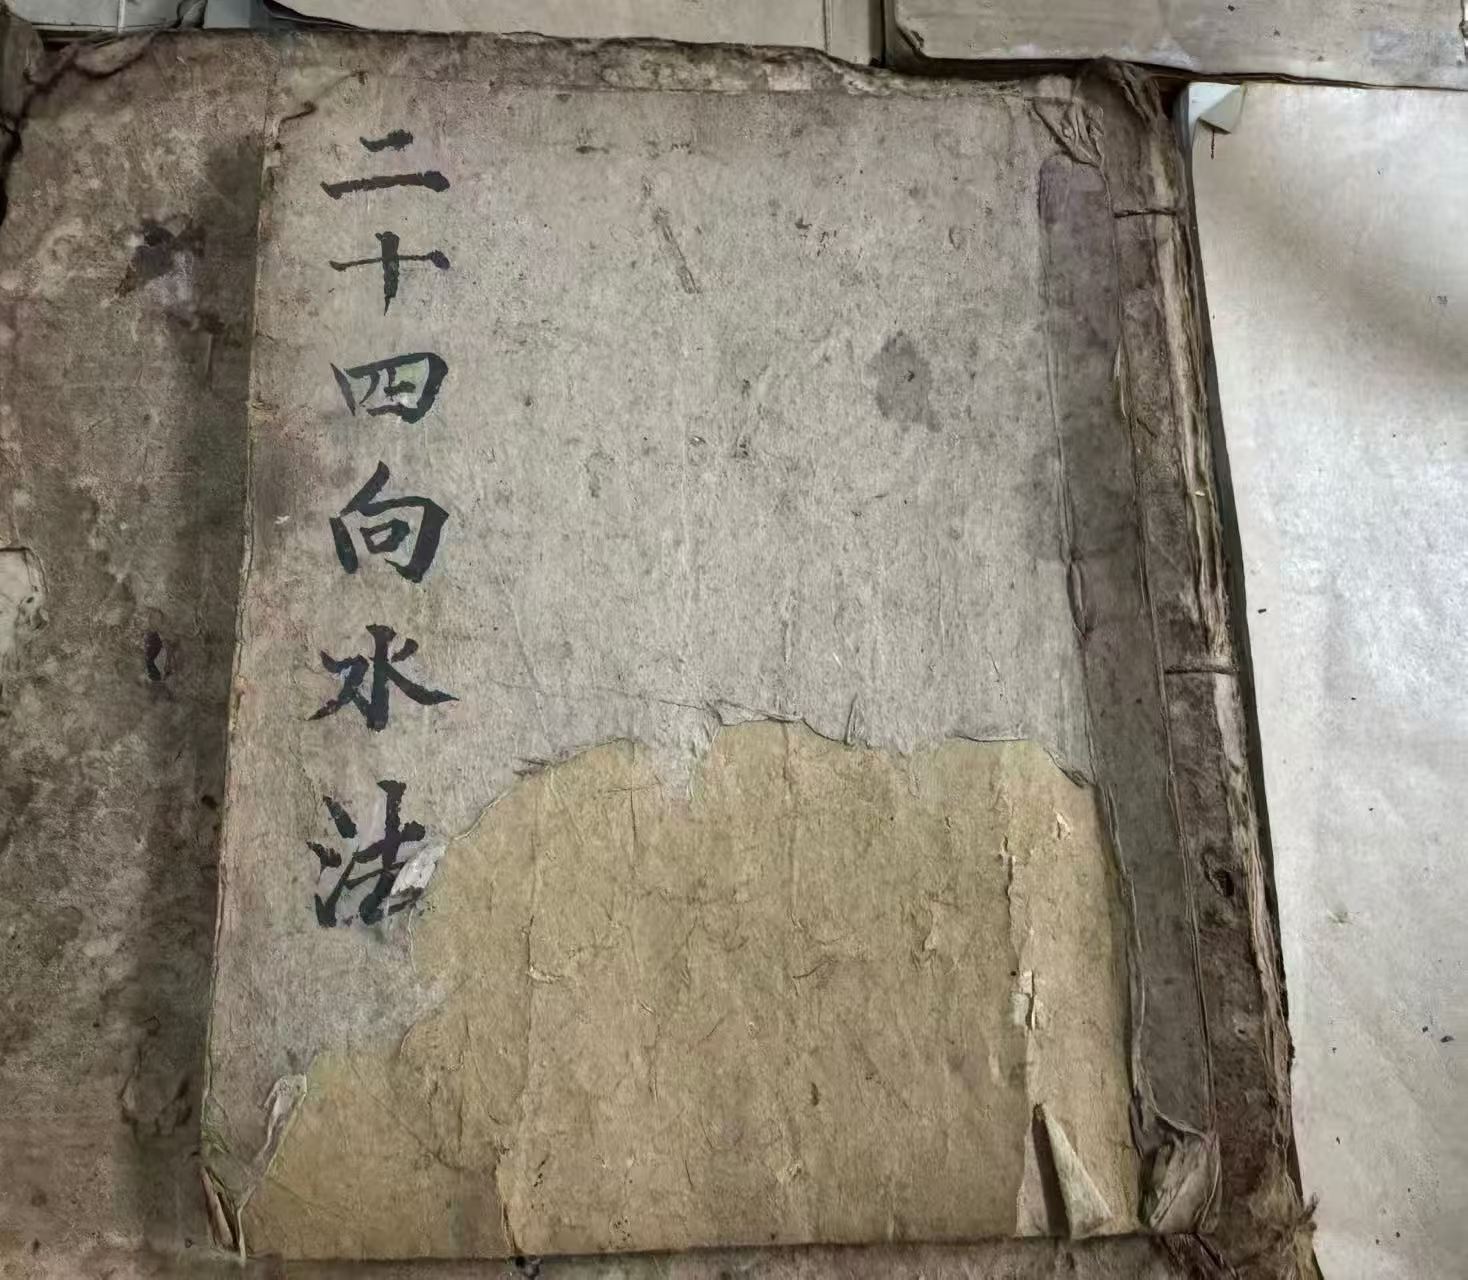 二十四向水法